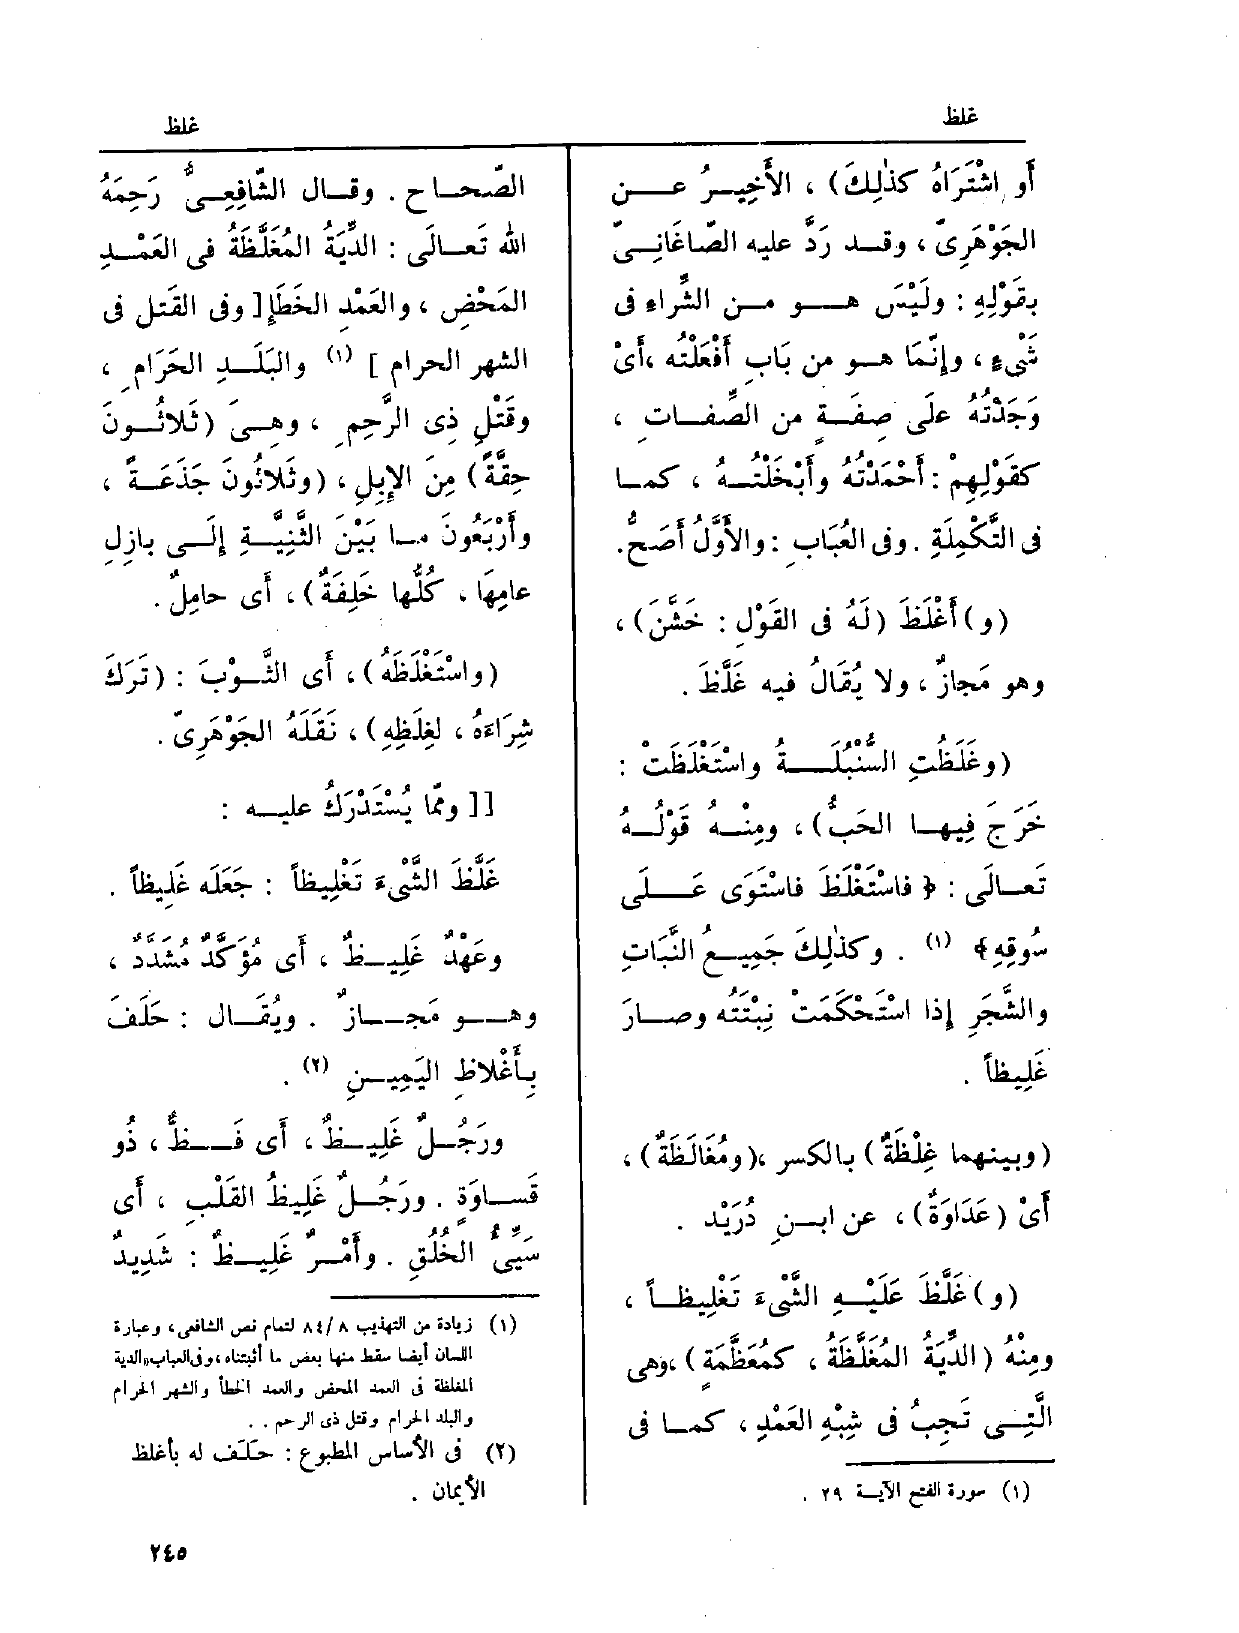 غلظ
غلظ
أو اشْتَرَاهُ كذٰلِكَ) ، الأَخِيــرُ عــن
الجَوْهَرِىّ ، وقـد رَدَّ عليه الصّاغَانِــىّ
بقَوْلِهِ : ولَيْسَ هــو مـن الشِّرَاءِ فى
شَىْءٍ ، وإِنَّمَا هـو من بَابِ أَفْعَلْتُه ،أَىْ
وَجَدْتُهُ على صِفَـةٍ من الصِّفَـاتِ ،
كقَوْلِهِمْ : أَحْمَدْتُهُ وأَبْخَلْتــهُ ، كمـا
فى التَّكْمِلَةِ . وفى العُبَابِ : والأَوَّلُ أَصَحُّ.
(و) أَغْلَظَ (لَهُ فى القَوْلِ : خَشَّنَ) ،
وهو مَجازٌ ، ولا يُقَالُ فيه غَلَّظَ .
(وغَلَظَتِ السُّنْبُلَـــةُ واسْتَغْلَظَتْ :
خَرَجَ فِيهـا الحَبُّ) ، ومِنْــهُ قَوْلُــهُ
تَعـالَى : ﴿ فاسْتَغْلَظَ فاسْتَوَى عَــلَى
سُوقِهِ﴾ (١) . وكذٰلِكَ جَمِيـعُ النَّبَاتِ
والشَّجَرِ إِذا اسْتَحْكَمَتْ نِبْتَتُه وصـارَ
غَلِيظاً .
(وبينهما غِلْظَةٌ) بالكسر ،(ومُغَالَظَةٌ) ،
أَىْ (عَدَاوَةٌ) ، عن ابـنِ دُرَيْد .
(و) غَلَّظَ عَلَيْــهِ الشَّىْءَ تَغْلِيظـاً ،
ومِنْهُ (الدِّيَةُ المُغَلَّظَةُ ، كمُعَظَّمَةٍ) ،وهى
الَّتِــى تَجِبُ فى شِبْهِ العَمْدِ ، كمـا فى
(١) سورة الفتح الآيـة ٢٩ .
الصّحـاح . وقـال الشّافِعِـىُّ رَحِمَهُ
الله تَعـالَى : الدِّيَةُ المُغَلَّظَةُ فى العَمْـدِ
المَحْضِ ، والعَمْدِ الخَطَإِ [ وفى القَتل فى
الشهر الحرام ] (١) والبَلَـدِ الحَرَامِ ،
وقَتْلِ ذِى الرَّحِمِ ، وهـىَ (ثَلاثُـونَ
حِقَّةً) مِنَ الإِبِلِ ، (وثَلاثُونَ جَذَعَـةً ،
وأَرْبَعُونَ مـا بَيْنَ الثَّنِيَّـةِ إِلَـى بازِلِ
عامِهَا ، كُلُّها خَلِفَةٌ) ، أَى حامِلٌ .
(واسْتَغْلَظَهُ) ، أَى الثَّـوْبَ : (تَرَكَ
شِرَاءَهُ ، لِغِلَظِهِ) ، نَقَلَهُ الجَوْهَرِىّ .
[] وممّا يُسْتَدْرَكُ عليـه :
غَلَّظَ الشَّىْءَ تَغْلِيظاً : جَعَلَه غَلِيظاً .
وعَهْدٌ غَلِيـظٌ ، أَى مُؤَكَّدٌ مُشَدَّدٌ ،
وهــو مَجـازٌ . ويُقـال : حَلَفَ
بأَغْلاظِ اليَمِيـنِ (٢) .
ورَجُـلٌ غَلِيـظٌ ، أَى فَــظٌّ ، ذُو
قَسـاوَةٍ . ورَجُـلٌ غَلِيظُ القَلْبِ ، أَى
سَيِّئُ الخُلُقِ . وأَمْـرٌ غَلِيـظٌ : شَدِيدٌ
(١) زيادة من التهذيب ٨ / ٨٤ لتمام نص الشافعى ، وعبارة
اللسان أيضا سقط منها بعض ما أثبتناه ،وفى العباب«الدية
المغلظة فى العمد المحض والعمد الخطأ والشهر الحرام
والبلد الحرام وقتل ذى الرحم . .
(٢) فى الأساس المطبوع : حَلَف له بأغلظ
الأيمان .
٢٤٥